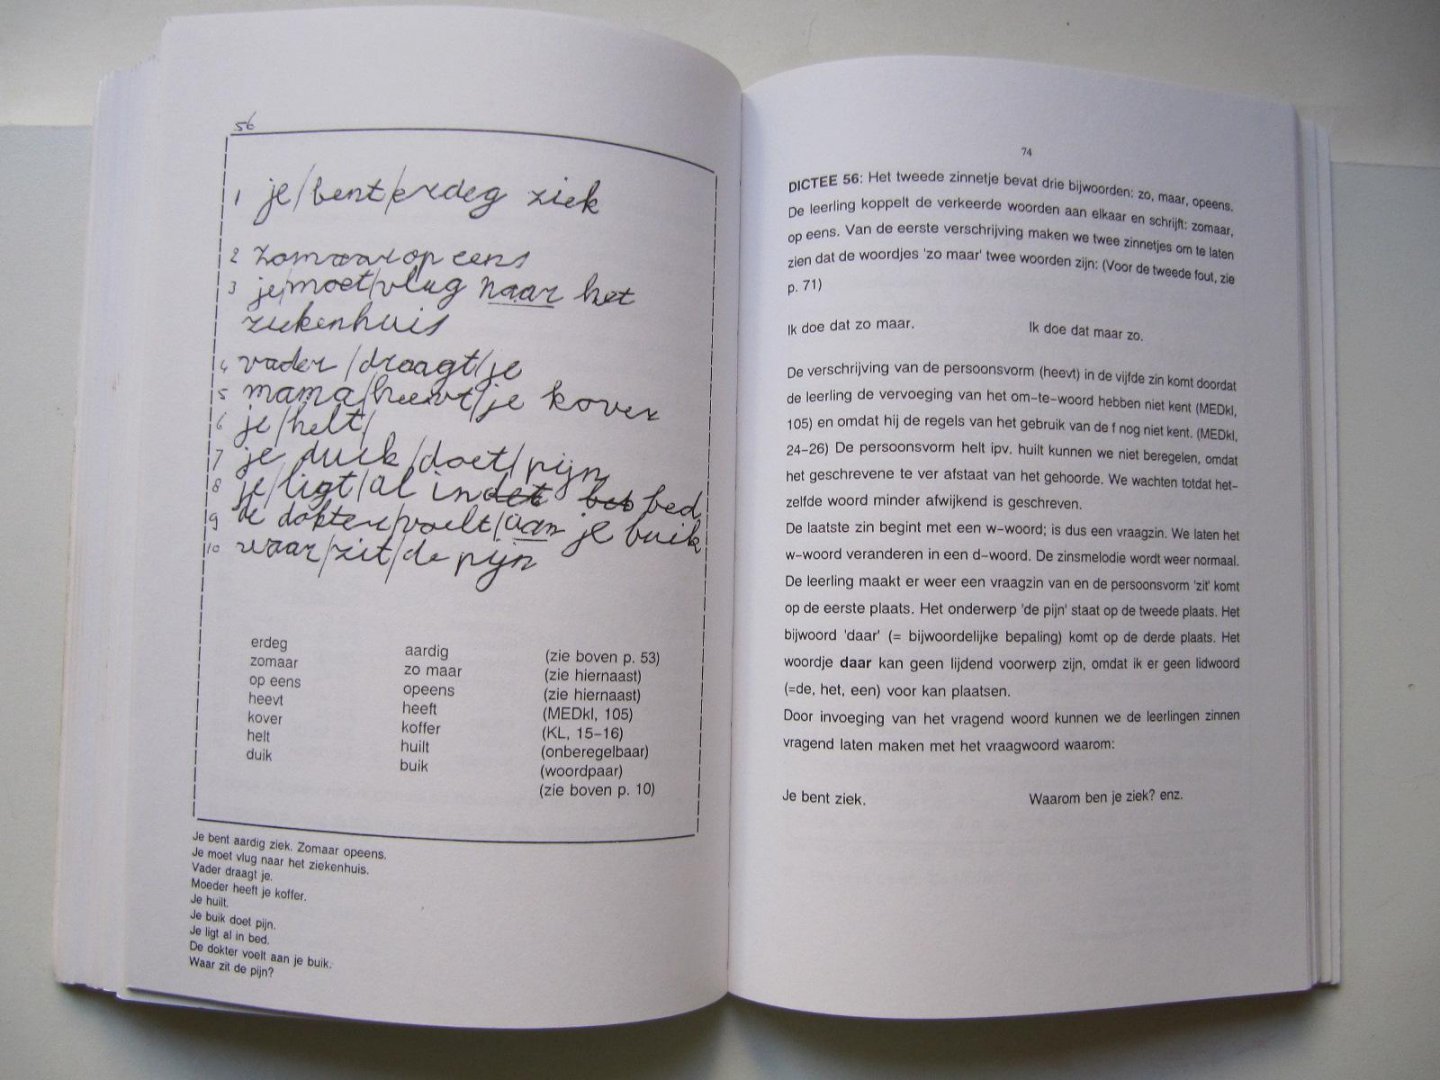 56
1 je/bent/erdeg ziek
2 zomaar op eens
3 je/moet/vlug naar het
ziekenhuis
4 vader/draagt/je
5 mama/heevt/je kover
6 je/helt/
7 je duik/doet/pijn
8 je/ligt/al in bed
9 de dokter/voelt/aan je buik
10 waar/zit/de pijn
erdeg aardig (zie boven p. 53)
zomaar zo maar (zie hiernaast)
op eens opeens (zie hiernaast)
heevt heeft (MEDkl, 105)
kover koffer (KL, 15-16)
helt huilt (onberegelbaar)
duik buik (woordpaar)
(zie boven p. 10)
Je bent aardig ziek. Zomaar opeens.
Je moet vlug naar het ziekenhuis.
Vader draagt je.
Moeder heeft je koffer.
Je huilt.
Je buik doet pijn.
Je ligt al in bed.
De dokter voelt aan je buik.
Waar zit de pijn?
74
DICTEE 56: Het tweede zinnetje bevat drie bijwoorden: zo, maar, opeens.
De leerling koppelt de verkeerde woorden aan elkaar en schrijft: zomaar,
op eens. Van de eerste verschrijving maken we twee zinnetjes om te laten
zien dat de woordjes 'zo maar' twee woorden zijn: (Voor de tweede fout, zie
p. 71)
Ik doe dat zo maar. Ik doe dat maar zo.
De verschrijving van de persoonsvorm (heevt) in de vijfde zin komt doordat
de leerling de vervoeging van het om-te-woord hebben niet kent (MEDkl,
105) en omdat hij de regels van het gebruik van de f nog niet kent. (MEDkl,
24-26) De persoonsvorm helt ipv. huilt kunnen we niet beregelen, omdat
het geschrevene te ver afstaat van het gehoorde. We wachten totdat het-
zelfde woord minder afwijkend is geschreven.
De laatste zin begint met een w-woord; is dus een vraagzin. We laten het
w-woord veranderen in een d-woord. De zinsmelodie wordt weer normaal.
De leerling maakt er weer een vraagzin van en de persoonsvorm 'zit' komt
op de eerste plaats. Het onderwerp 'de pijn' staat op de tweede plaats. Het
bijwoord 'daar' (= bijwoordelijke bepaling) komt op de derde plaats. Het
woordje daar kan geen lijdend voorwerp zijn, omdat ik er geen lidwoord
(=de, het, een) voor kan plaatsen.
Door invoeging van het vragend woord kunnen we de leerlingen zinnen
vragend laten maken met het vraagwoord waarom:
Je bent ziek. Waarom ben je ziek? enz.